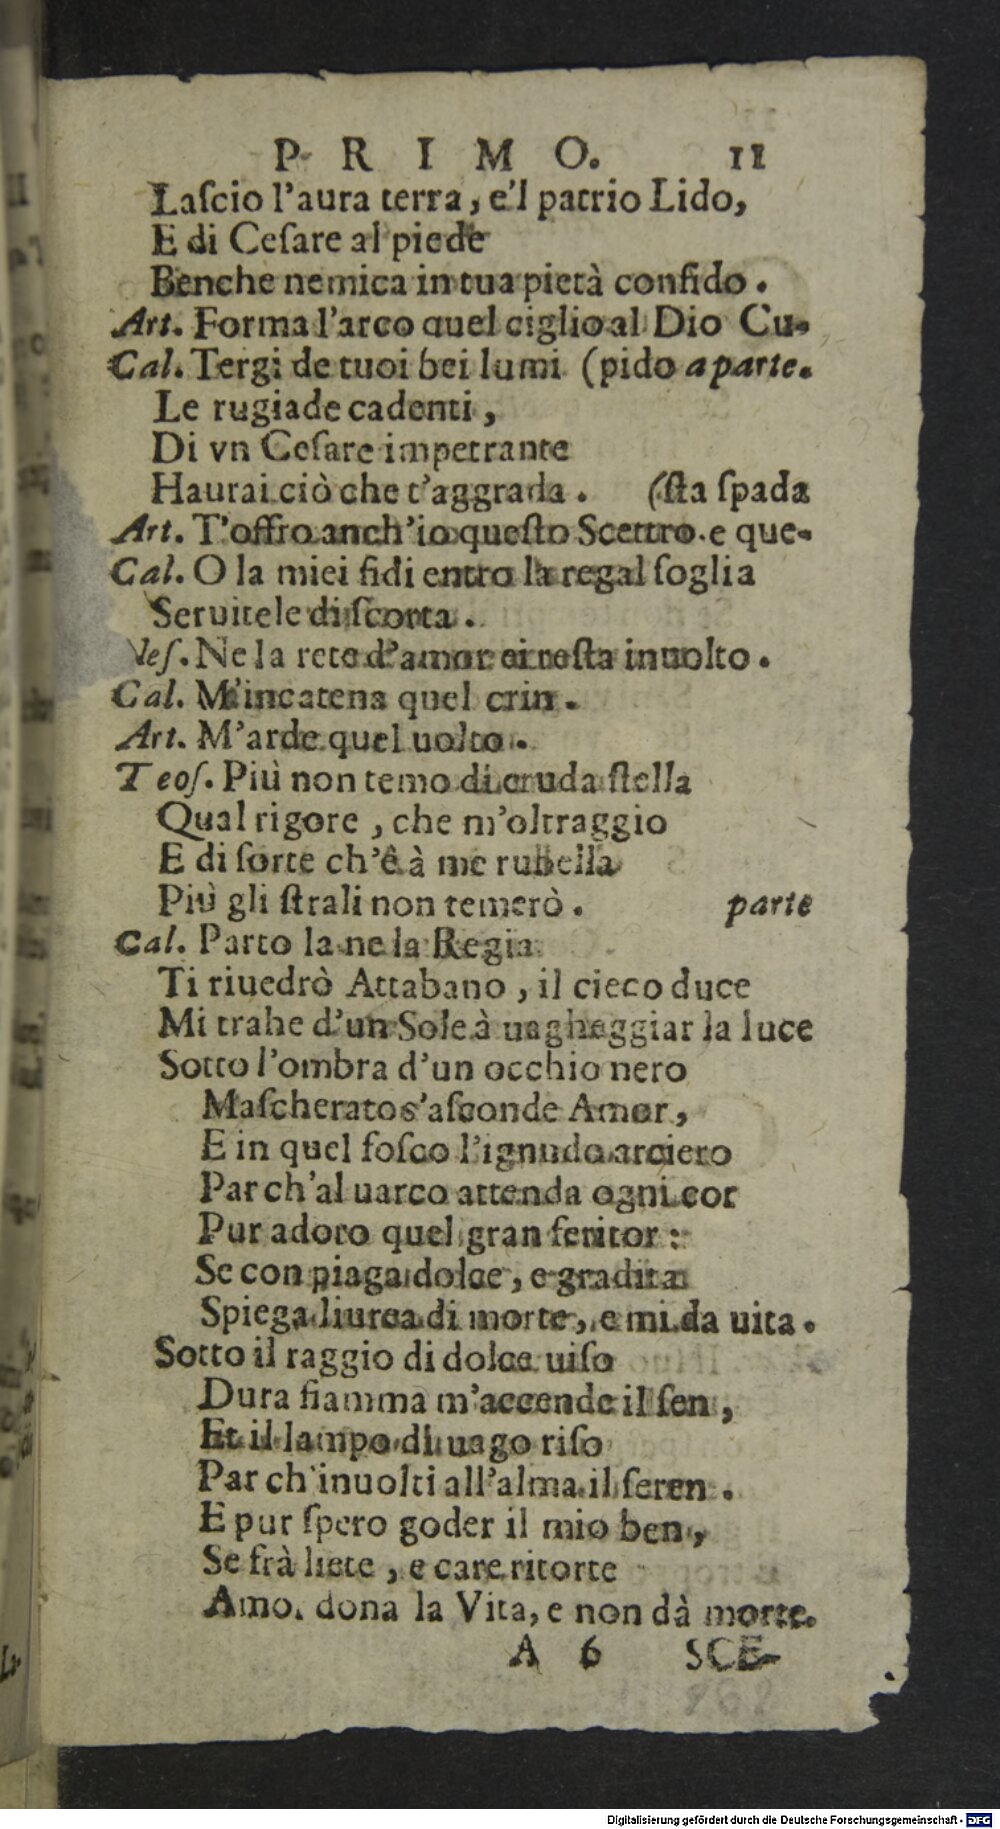 PRIMO. 11
Laſcio l'aura terra, e'l patrio Lido,
E di Ceſare al piede
Benche nemica in tua pietà confido.
Art. Forma l'arco quel ciglio al Dio Cu-
Cal. Tergi de tuoi bei lumi (pido a parte.
Le rugiade cadenti,
Di vn Ceſare impetrante
Haurai ciò che t'aggrada. (ſta ſpada
Art. T'offro anch'io queſto Scettro e que-
Cal. O la miei fidi entro la regal ſoglia
Seruitele di ſcorta.
Veſ. Ne la rete d'amor ei reſta inuolto.
Cal. M'incatena quel crin.
Art. M'arde quel uolto.
Teoſ. Più non temo di cruda ſtella
Qual rigore, che m'oltraggio
E di ſorte ch'ê à me rubella
Più gli ſtrali non temerò. parte
Cal. Parto la ne la Regia
Ti riuedrò Attabano, il cieco duce
Mi trahe d'un Sole à uagheggiar la luce
Sotto l'ombra d'un occhio nero
Maſcherato s'aſconde Amor,
E in quel foſco l'ignudo arciero
Par ch'al uarco attenda ogni cor
Pur adoro quel gran feritor:
Se con piaga dolce, e gradita
Spiega liurea di morte, e mi da uita.
Sotto il raggio di dolce uiſo
Dura fiamma m'accende il ſen,
Et il lampo di uago riſo
Par ch'inuolti all'alma il ſeren.
E pur ſpero goder il mio ben,
Se frà liete, e care ritorte
Amo. dona la Vita, e non dà morte.
A 6 SCE-
Digitalisierung gefördert durch die Deutsche Forschungsgemeinschaft - DFG